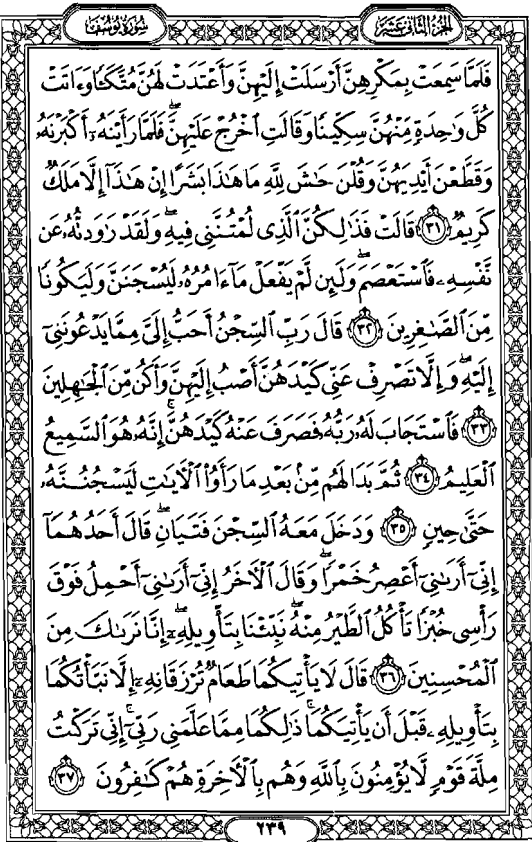 سُورَةُ يُوسُفَ
الجُزْءُ الثَّانِي عَشَرَ
فَلَمَّا سَمِعَتْ بِمَكْرِهِنَّ أَرْسَلَتْ إِلَيْهِنَّ وَأَعْتَدَتْ لَهُنَّ مُتَّكَـًٔا وَءَاتَتْ
كُلَّ وَٰحِدَةٍ مِّنْهُنَّ سِكِّينًا وَقَالَتِ ٱخْرُجْ عَلَيْهِنَّ ۖ فَلَمَّا رَأَيْنَهُۥٓ أَكْبَرْنَهُۥ
وَقَطَّعْنَ أَيْدِيَهُنَّ وَقُلْنَ حَٰشَ لِلَّهِ مَا هَٰذَا بَشَرًا إِنْ هَٰذَآ إِلَّا مَلَكٌ
كَرِيمٌ ٣١ قَالَتْ فَذَٰلِكُنَّ ٱلَّذِى لُمْتُنَّنِى فِيهِ ۖ وَلَقَدْ رَٰوَدتُّهُۥ عَن
نَّفْسِهِۦ فَٱسْتَعْصَمَ ۖ وَلَئِن لَّمْ يَفْعَلْ مَآ ءَامُرُهُۥ لَيُسْجَنَنَّ وَلَيَكُونًا
مِّنَ ٱلصَّٰغِرِينَ ٣٢ قَالَ رَبِّ ٱلسِّجْنُ أَحَبُّ إِلَىَّ مِمَّا يَدْعُونَنِىٓ
إِلَيْهِ ۖ وَإِلَّا تَصْرِفْ عَنِّى كَيْدَهُنَّ أَصْبُ إِلَيْهِنَّ وَأَكُن مِّنَ ٱلْجَٰهِلِينَ
٣٣ فَٱسْتَجَابَ لَهُۥ رَبُّهُۥ فَصَرَفَ عَنْهُ كَيْدَهُنَّ ۚ إِنَّهُۥ هُوَ ٱلسَّمِيعُ
ٱلْعَلِيمُ ٣٤ ثُمَّ بَدَا لَهُم مِّنۢ بَعْدِ مَا رَأَوُا۟ ٱلْـَٔايَٰتِ لَيَسْجُنُنَّهُۥ
حَتَّىٰ حِينٍ ٣٥ وَدَخَلَ مَعَهُ ٱلسِّجْنَ فَتَيَانِ ۖ قَالَ أَحَدُهُمَآ
إِنِّىٓ أَرَىٰنِىٓ أَعْصِرُ خَمْرًا ۖ وَقَالَ ٱلْـَٔاخَرُ إِنِّىٓ أَرَىٰنِىٓ أَحْمِلُ فَوْقَ
رَأْسِى خُبْزًا تَأْكُلُ ٱلطَّيْرُ مِنْهُ ۖ نَبِّئْنَا بِتَأْوِيلِهِۦٓ ۖ إِنَّا نَرَىٰكَ مِنَ
ٱلْمُحْسِنِينَ ٣٦ قَالَ لَا يَأْتِيكُمَا طَعَامٌ تُرْزَقَانِهِۦٓ إِلَّا نَبَّأْتُكُمَا
بِتَأْوِيلِهِۦ قَبْلَ أَن يَأْتِيَكُمَا ۚ ذَٰلِكُمَا مِمَّا عَلَّمَنِى رَبِّىٓ ۚ إِنِّى تَرَكْتُ
مِلَّةَ قَوْمٍ لَّا يُؤْمِنُونَ بِٱللَّهِ وَهُم بِٱلْـَٔاخِرَةِ هُمْ كَٰفِرُونَ ٣٧
٢٣٩